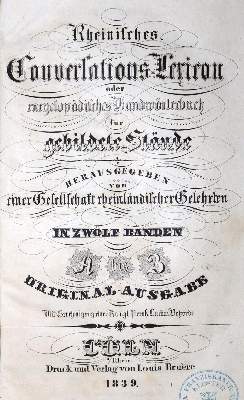 Rheinisches
Conversations-Lexicon
oder
encyclopädisches Handwörterbuch
für
gebildete Stände
HERAUSGEGEBEN
von
einer Gesellschaft rheinländischer Gelehrten
IN ZWÖLF BÄNDEN
A Z
ORIGINAL AUSGABE
CÖLN
Druck und Verlag von Louis Bruère
1839.